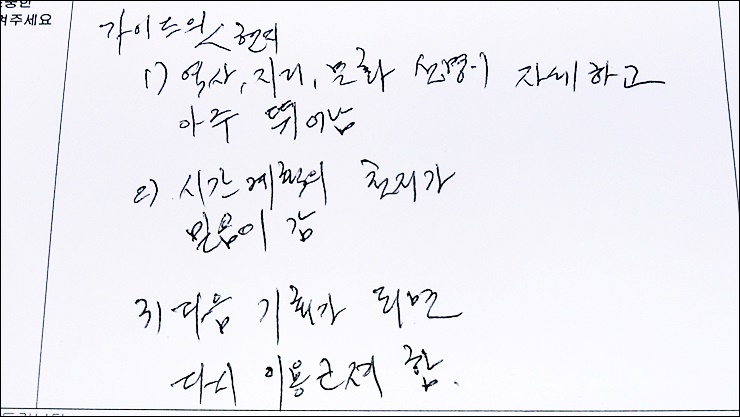 겨주세요
가이드의 현지
1) 역사, 지리, 문화 설명이 자세하고
아주 뛰어남
2) 시간계획의 천지가
믿음이 감
3) 다음 기회가 되면
다시 이용코져 함.